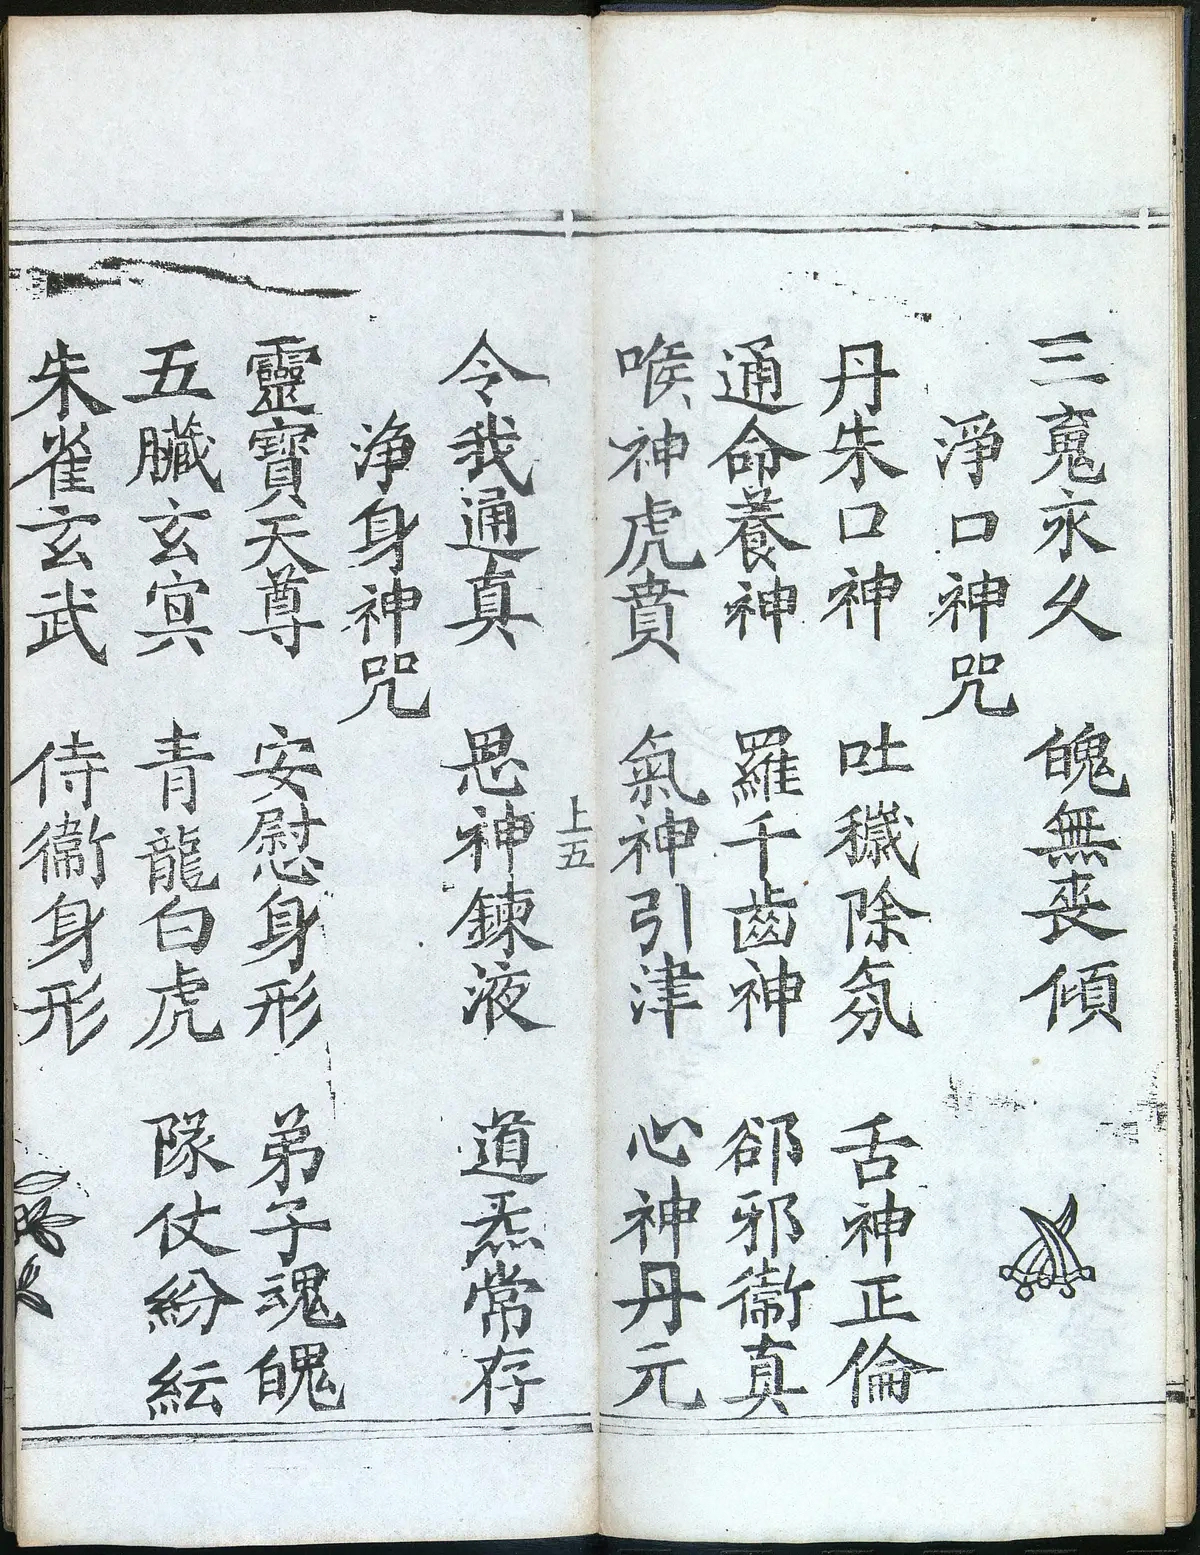 三䰟永久 魄無䘮傾
淨口神咒
丹朱口神 吐穢除氛 舌神正倫
通命養神 羅千齒神 郤邪衞真
喉神虎賁 氣神引津 心神丹元
上五
令我通真 思神鍊液 道炁常存
浄身神咒
靈寶天尊 安慰身形 弟子魂魄
五臟玄寅 青龍白虎 隊仗紛紜
朱雀玄武 侍衞身形